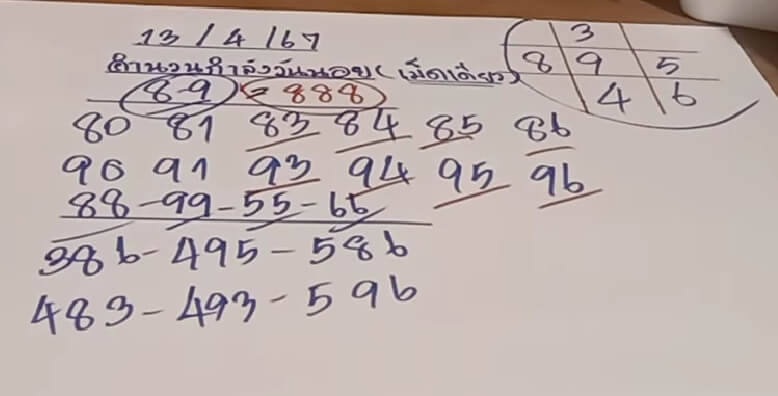 13/4/67
คำนวนกำลังวันหนอย(เม็ดเดียว)
3
8 9 5
4 6
89 = 888
80 81 83 84 85 86
90 91 93 94 95 96
88-99-55-66
386-495-586
483-493-596